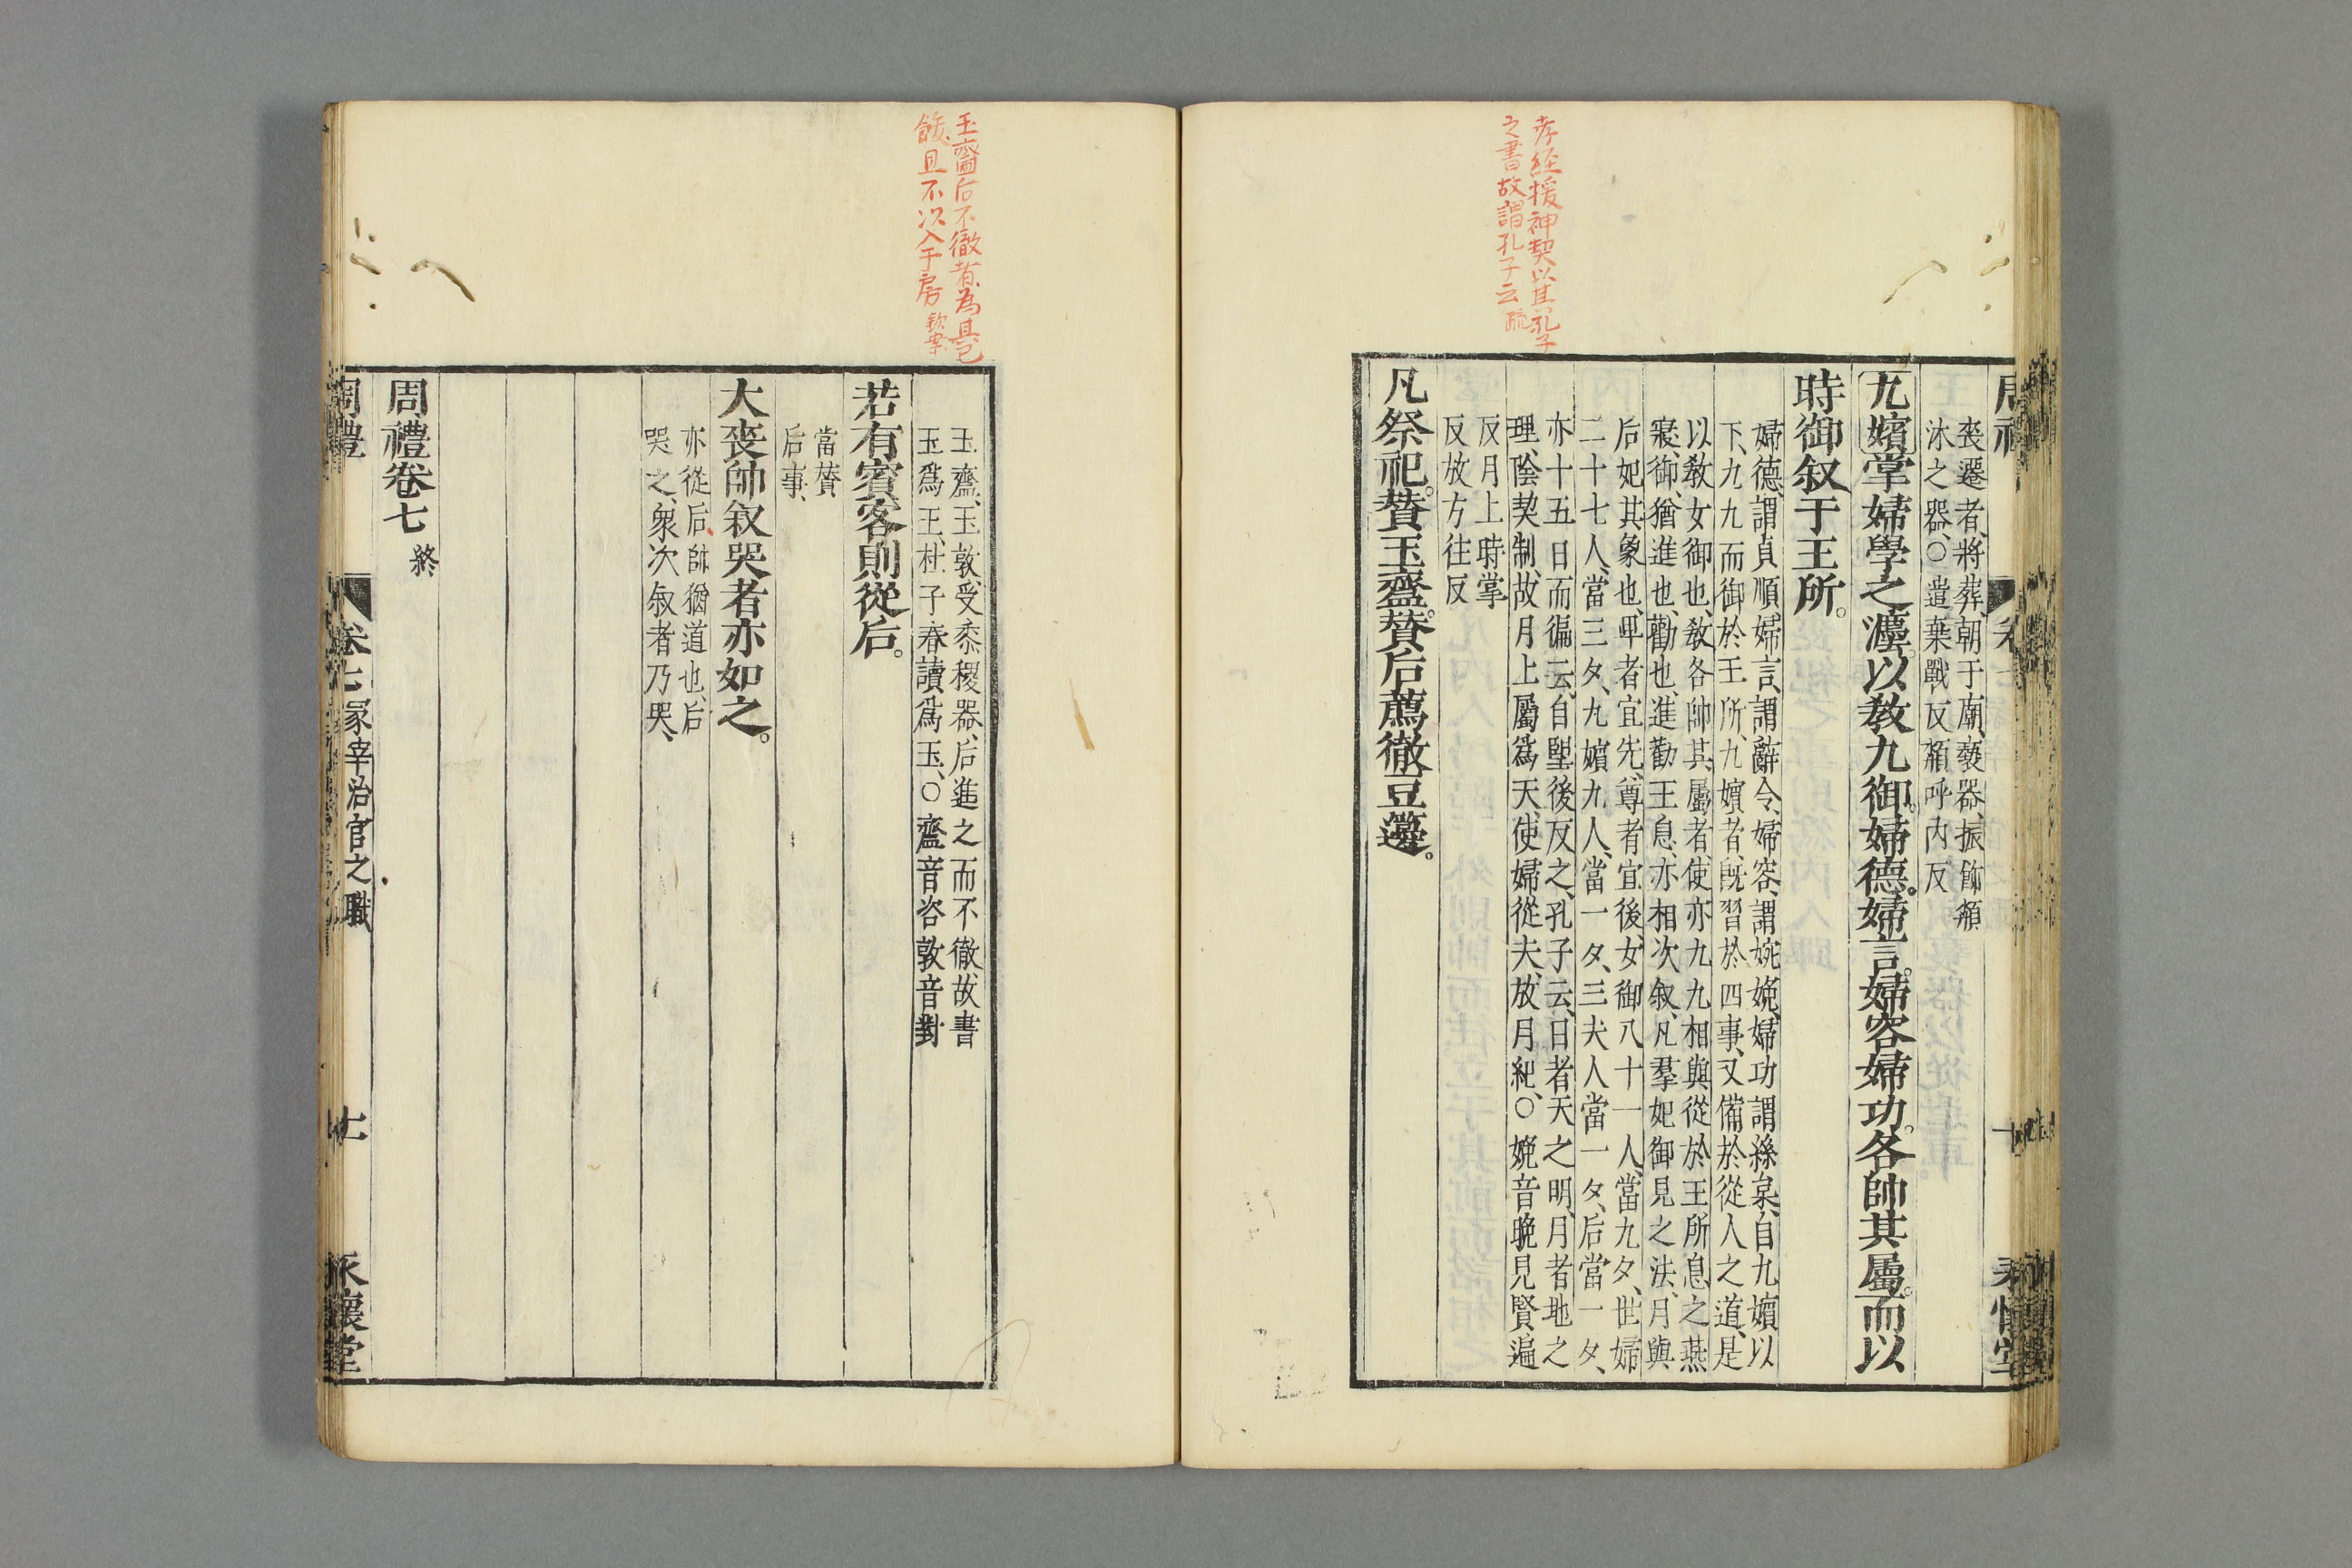 孝經援神契以其孔子
之書故謂孔子云疏
喪遷者、將葬、朝于廟、褻器、振飾頮
沐之器、○遣棄戰反頮呼內反
九嬪掌婦學之灋。以敎九御。婦德。婦言。婦容婦功。各帥其屬。而以
時御叙于王所。
婦德、謂貞順、婦言、謂辭令、婦容、謂婉娩、婦功謂絲枲、自九嬪以
下、九九而御於王所、九嬪者、旣習於四事、又備於從人之道、是
以敎女御也、敎各帥其屬者、使亦九九相與從於王所息之燕
寢、御、猶進也、勸也、進勸王息、亦相次叙、凡羣妃御見之法、月與
后妃其象也、甲者宜先、尊者宜後、女御八十一人、當九夕、世婦
二十七人、當三夕、九嬪九人、當一夕、三夫人當一夕、后當一夕、
亦十五日而徧云、自朢後反之、孔子云、日者天之明、月者地之
理、陰契制、故月上屬爲天、使婦從夫、放月紀、○娩音晚見賢遍
反月上時掌
反放方往反
凡祭祀。贊玉齍。贊后薦徹豆籩。
玉齍后不徹者為其已
餕且不次入于房 欽案
玉齍、玉敦、受黍稷器、后進之而不徹、故書
玉爲王、杜子春讀爲玉、○齍音咨敦音對
若有賓客則從后。
當贊
后事、
大喪帥叙哭者亦如之。
亦從后、帥猶道也、后
哭之、衆次叙者乃哭、
周禮卷七 終
周禮 卷七冢宰治官之職 十一 永懷堂